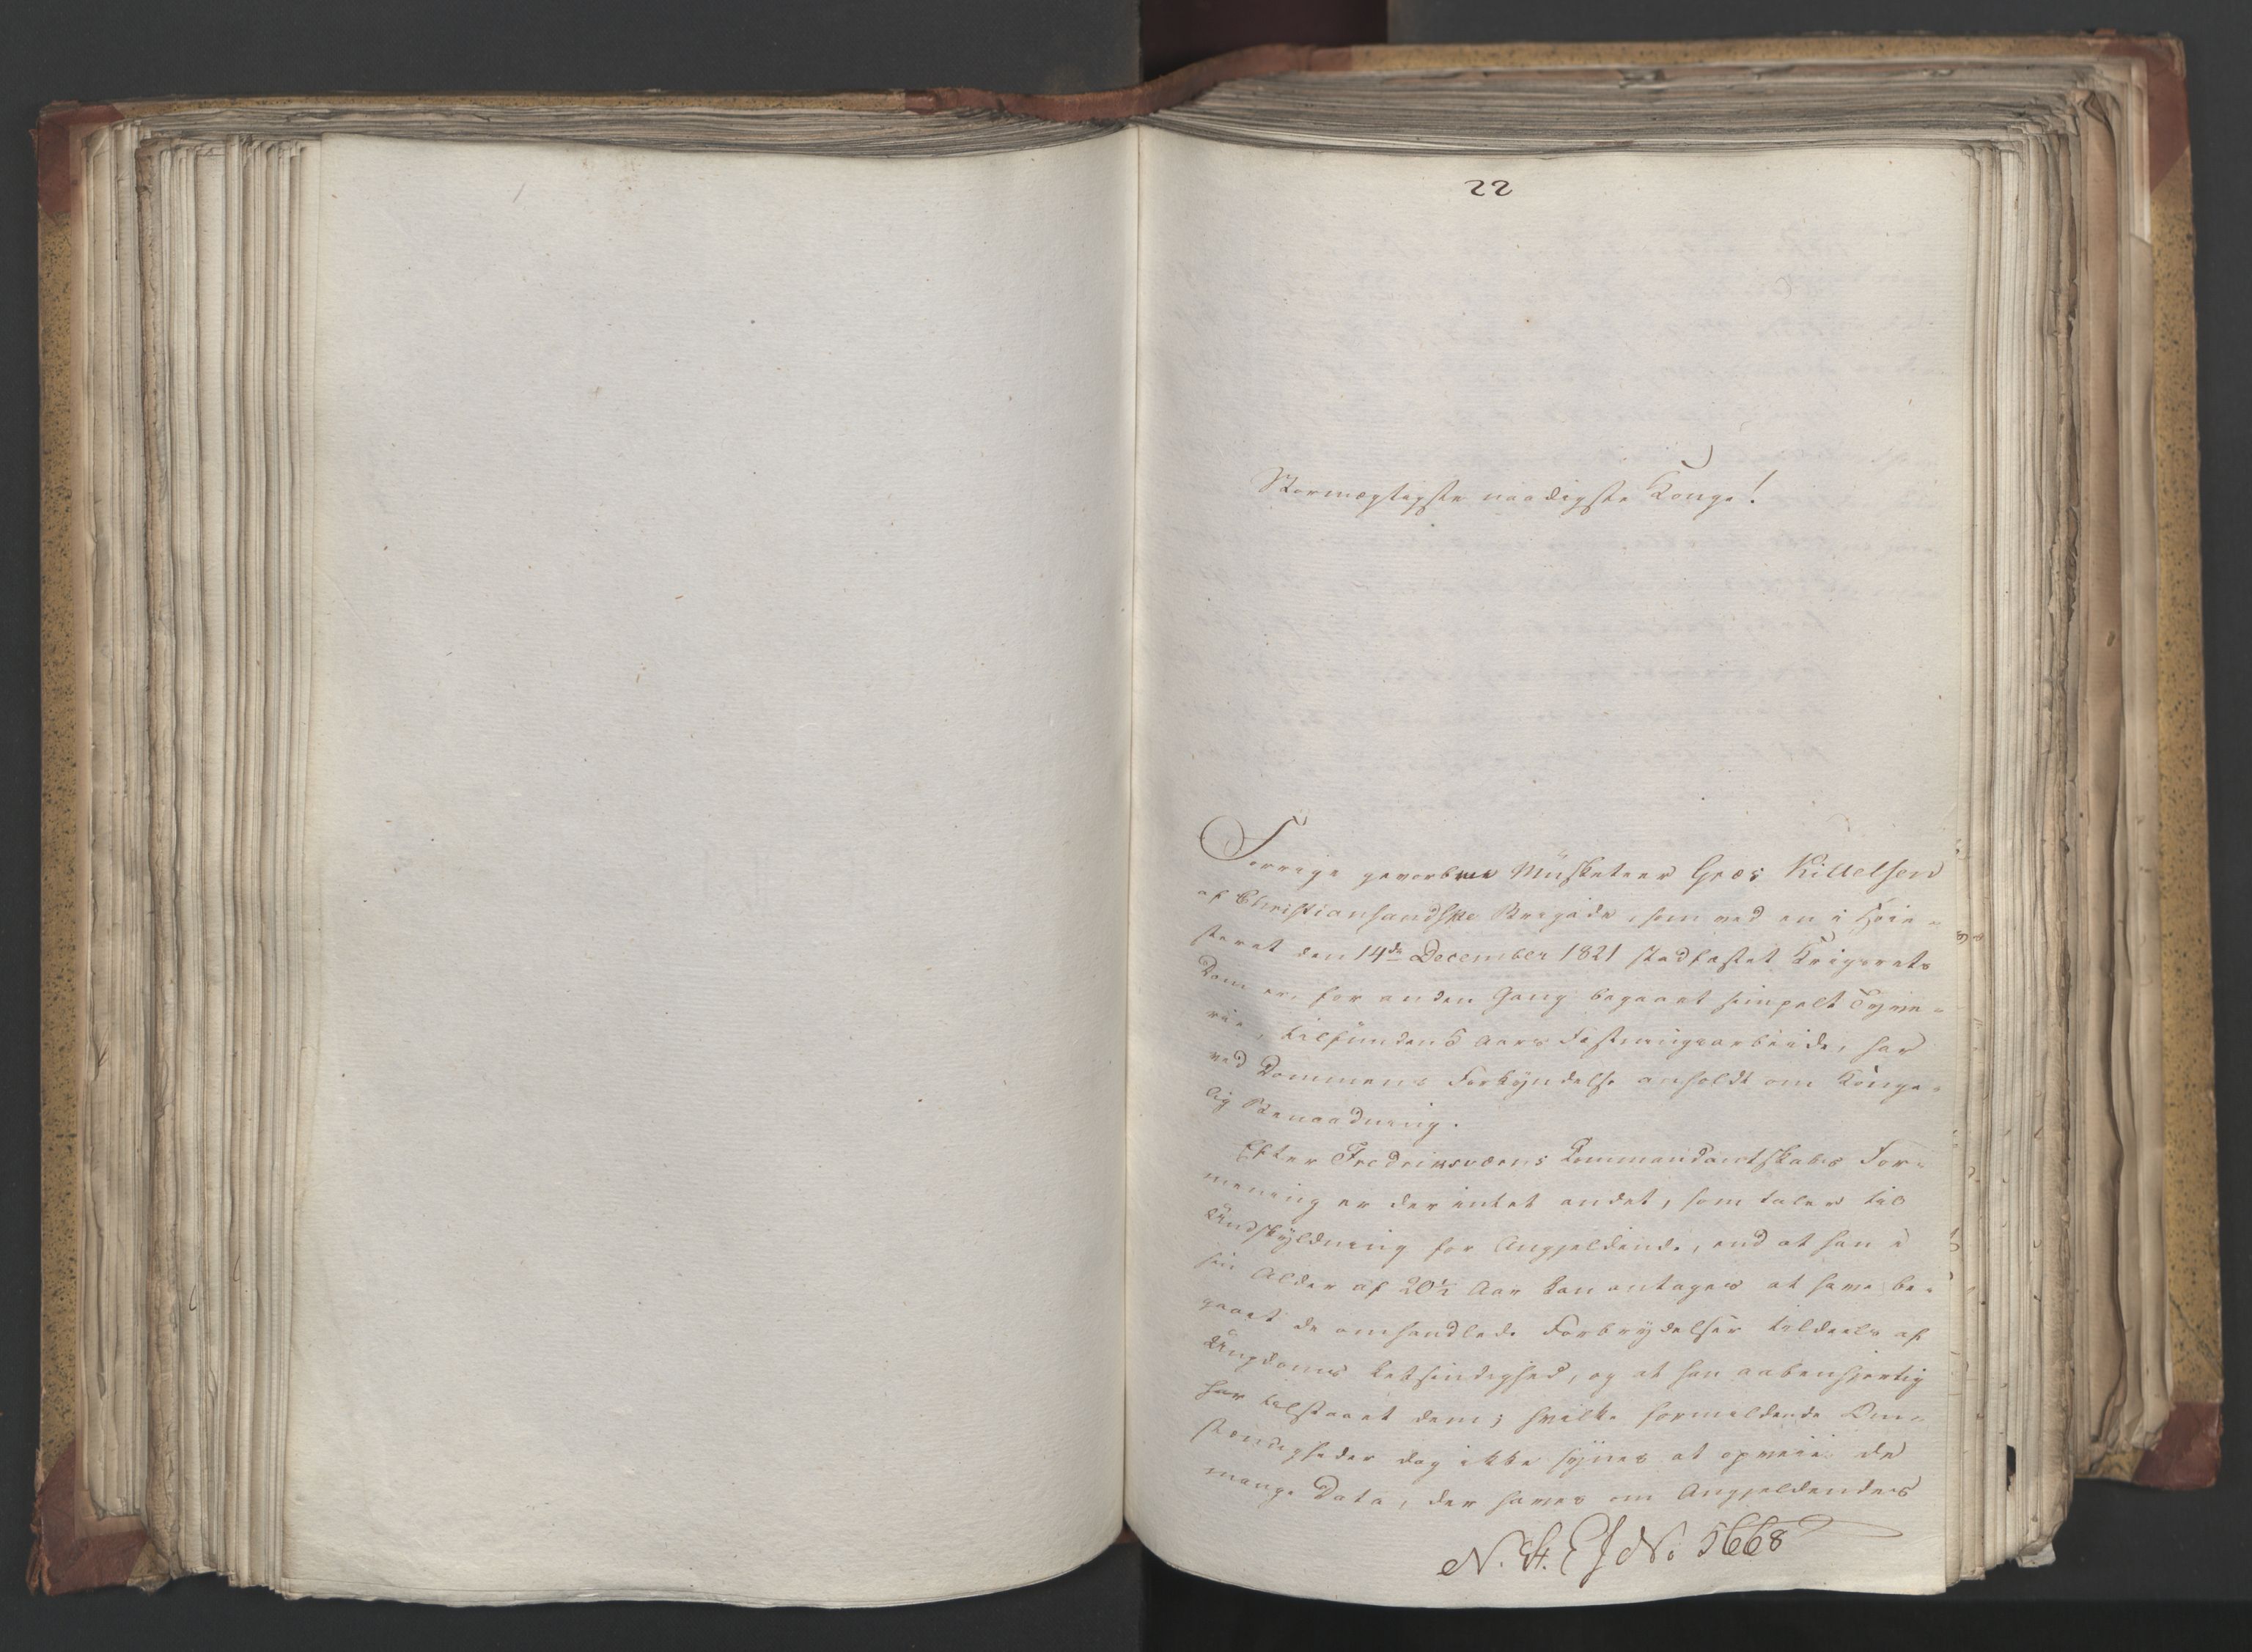 22
Stormægtigste naadigste Konge!
Forrige gevorbne Musketeer Græs Kittelsen
af Christiansandske Brigade, som ved en i Høie-
steret den 14de December 1821 stadfæstet Krigsrets
Dom er, for anden Gang begaaet simpelt Tyve-
rie, tilfunden 5 Aars Fæstningsarbeide, har
ved Dommens Forkyndelse anholdt om Konge-
lig Benaadning.
Efter Fredriksværns Commandantskabs For-
mening er der intet andet, som taler til
Undskyldning for Angjeldende, end at han i
sin Alder af 20½ Aar kan antages at have be-
gaaet de omhandlede Forbrydelser tildeels af
Ungdoms Letsindighed, og at han aabenhjertig
har tilstaaet dem; hvilke formeldende Om-
stændigheder dog ikke synes at opveie de
mange Data, der haves om Angjeldendes
No. 5668